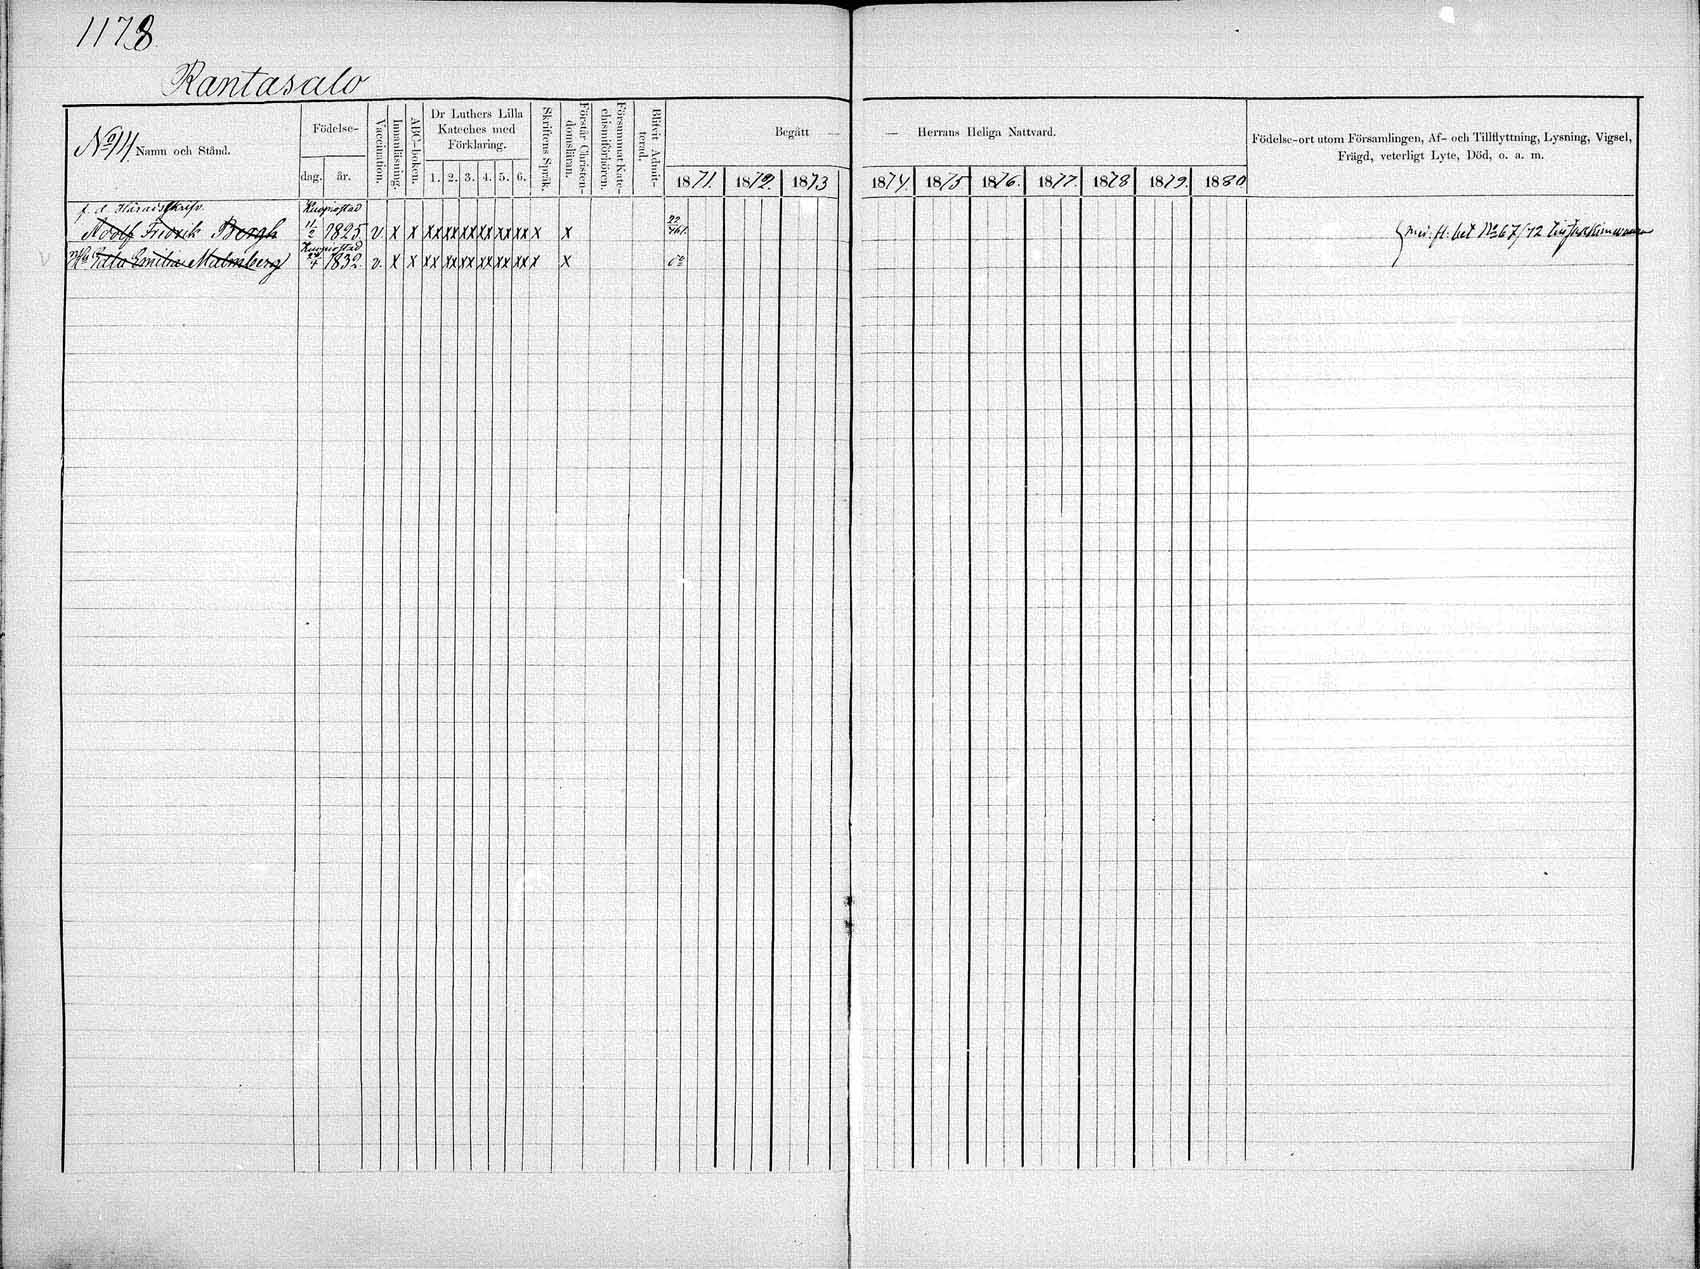 1178.
Rantasalo
No 14 Namn och Stånd.
Födelse-
dag. år.
Vaccination.
Innanläsning.
ABC-boken.
Dr Luthers Lilla
Kateches med
Förklaring.
1. 2. 3. 4. 5. 6.
Skriftens Språk.
Förstår Christen-
domsläran.
Försummat Kate-
chismiförhören.
Blifvit Admit-
terad.
Begått —
— Herrans Heliga Nattvard.
1871. 1872. 1873
1874. 1875 1876. 1877. 1878 1879. 1880
Födelse-ort utom Församlingen, Af- och Tillflyttning, Lysning, Vigsel,
Frägd, veterligt Lyte, Död, o. a. m.
f. d. Häradsskrifv. Kuopiostad
Adolf Fredrik Bergh 11/2 1825 v x x xx xx xx xx xx xx x x
bet No 67/72
Kuopiostad
Emilia Malmberg 1832 v. x x xx xx xx xx xx xx x x